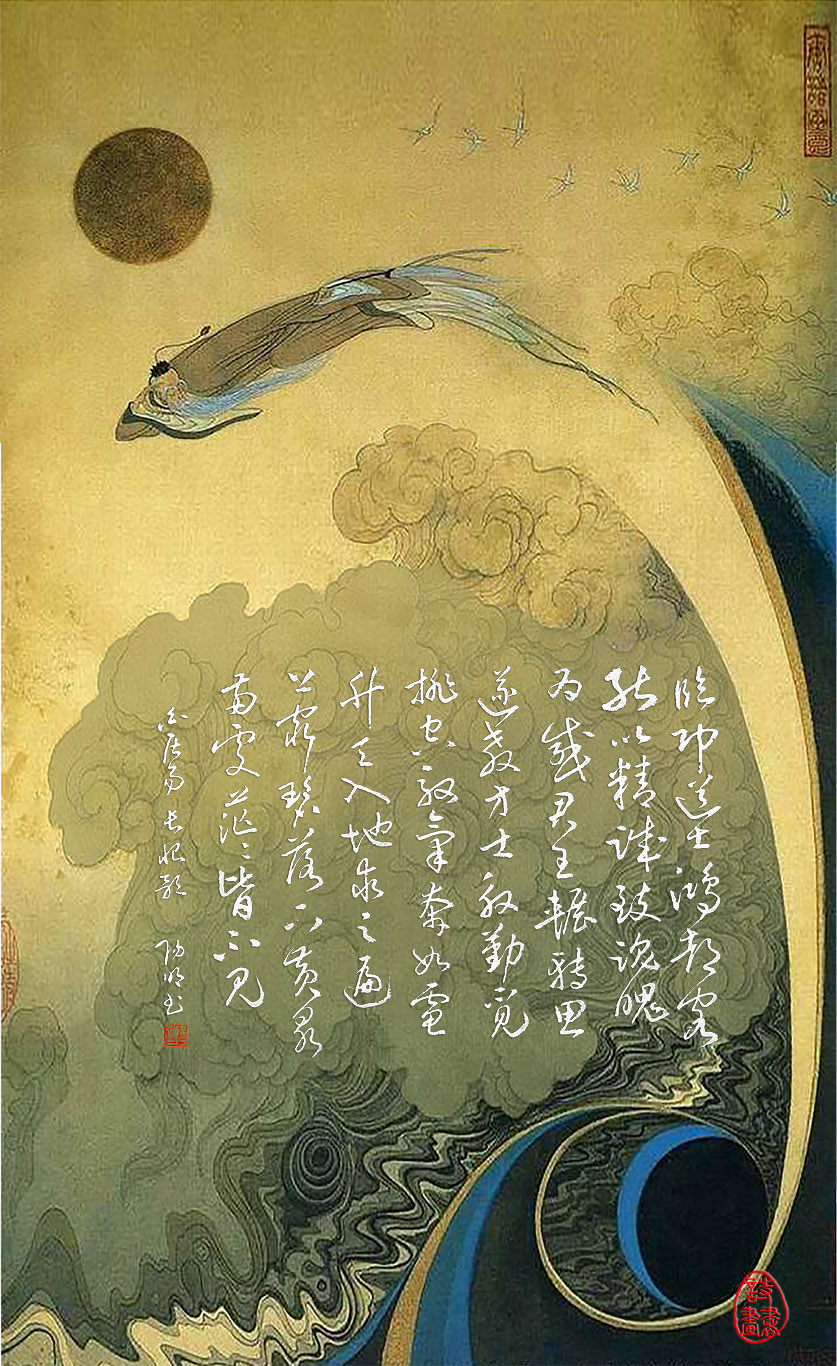 臨邛道士鴻都客
能以精誠致魂魄
為感君王輾轉思
遂教方士殷勤覓
排空馭氣奔如電
升天入地求之遍
上窮碧落下黃泉
兩處茫〻皆不見
白居易 長恨歌 陽明书